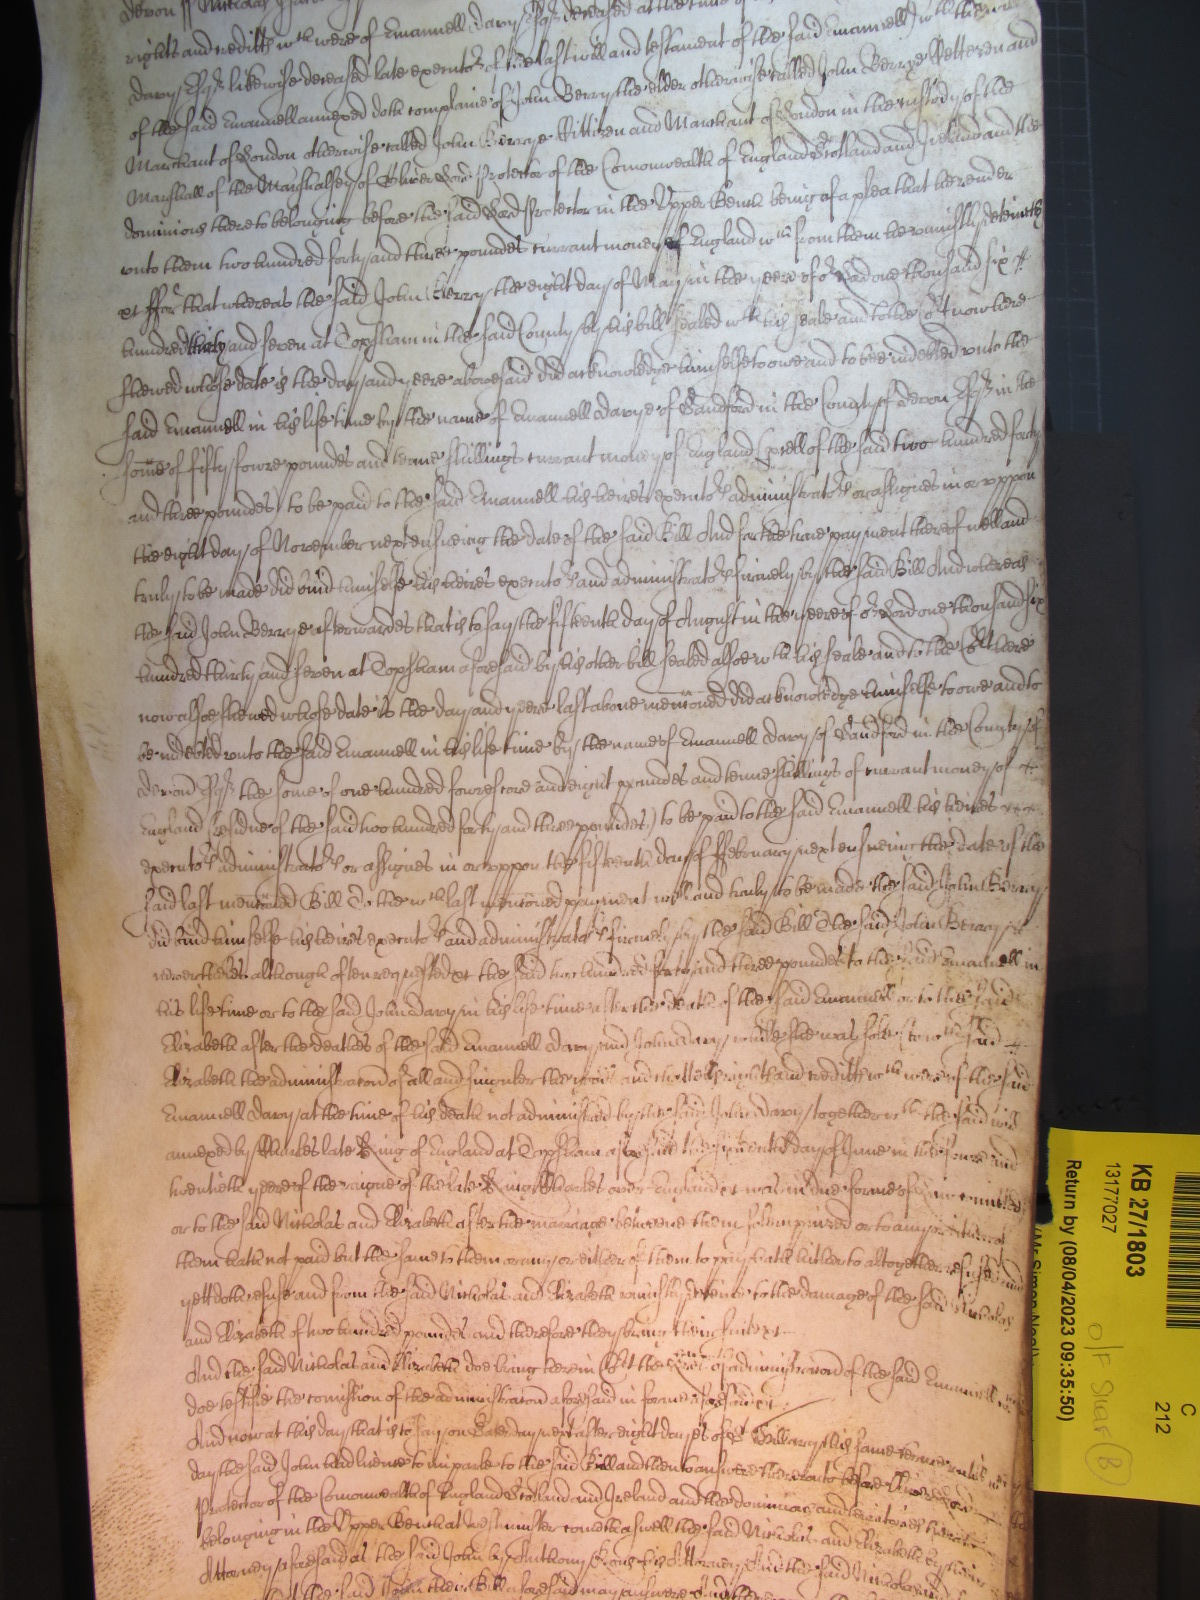 Devon ss Nicholas
rights and creditts wch were of Emanuell Davy Esqr deceased at the time of
Davy Esqr likewise deceased late executor of the last will and testament of the said Emanuell wth the
of the said Emanuell annexed doth complaine of John Berry the elder otherwise called John Berrye Cittizen and
Marchant of London otherwise called John Berrye Cittizen and Marchant of London in the custody of the
Marshall of the Marshalsey of Oliver Lord Protector of the Comonwealth of England Scotland and Ireland and the
dominions thereto belonging before the said Lord Protector in the Upper Bench being of a plea that he render
unto them two hundred forty and three poundes currant money of England wch from them he uniustly deteineth
et ffor that whereas the said John Berry the eight day of May in the yeere of or Lord one thousand six
hundred thirty and seven at Topsham in the said County by his bill sealed wth his seale and to the Cort now here
shewed whose date is the day and yeere abovesaid did acknowledge himselfe to owe and to bee indebted unto the
said Emanuell in his life time by the name of Emanuell Davye of Sandford in the County of Devon Esqr in the
some of fifty fowre poundes and tenne shillings currant money of England (pcell of the said two hundred forty
and three poundes) to be paid to the said Emanuell his heires executors administrators or assignes in or uppon
the eight day of November next ensueing the date of the said Bill And for the true payment thereof well and
truly to be made did bind himselfe his heires executors and administrators firmely by the said Bill And whereas
the said John Berrye afterwardes that is to say the fifteenth day of August in the yeere of or Lord one thousand six
hundred thirty and seven at Topsham aforesaid by his other bill sealed alsoe wth his seale and to the Cort here
now alsoe shewed whose date is the day and yeere last above menconed did acknowledge himselfe to owe and to
be indebted unto the said Emanuell in his life time by the name of Emanuell Davy of Sandford in the County of
Devon Esqr the some of one hundred fowrescore and eight poundes and tenne shillings of currant money of
England (residue of the said two hundred forty and three poundes) to be paid to the said Emanuell his heires
executors administrators or assignes in or uppon the fifteenth day of ffebruary next ensueing the date of the
said last menconed Bill To the wch last menconed payment well and truly to be made the said John Berry
did bind himselfe his heires executors and administrators firmely by the said Bill The said John Berry
nevertheles although often requested et the said two hundred forty and three poundes to the said Emanuell in
his life time or to the said John Davy in his life time after the death of the said Emanuell or to the said
Elizabeth after the deathes of the said Emanuell Davy and John Davy while she was sole to wch said
Elizabeth the administracon of all and singuler the goods and chattells rights and creditts wch were of the said
Emanuell Davy at the time of his death not administred by the said John Davy together wth the said will
annexed by Charles late King of England at Topsham aforesaid the day of June in the and
twentieth yeere of the raigne of the late King Charles over England et was in due forme of comitted
or to the said Nicholas and Elizabeth after the marriage betweene them solempnized or to any or either of
them hath not paid but the same to them or any or either of them to pay hath hitherto altogether refused and
yett doth refuse and from the said Nicholas and Elizabeth uniustly deteine to the damage of the said Nicholas
and Elizabeth of two hundred poundes and therefore they bring their suite et
And the said Nicholas and Elizabeth doe bring here in Cort the of administracon of the said Emanuell
doe testifie the comission of the administracon aforesaid in forme aforesaid et
And now at this day that is to say on day next after eight dayes of St Hillary this same terme untill
day the said John had licence to imparle to the said Bill and then to answere thereunto before Oliver Lord
Protector of the Comonwealth of England Scotland and Ireland and the dominions and territories thereto
belonging in the Upper Bench at Westminster cometh aswell the said Nicholas and Elizabeth by their
Attorney aforesaid as the said John by Anthony his Attorney And the said Nicholas and
the said John to their Bill aforesaid may answere And
KB 27/1803
13177027
Return by (08/04/2023 09:35:50)
C
212